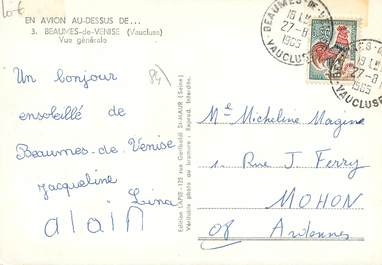 10€
EN AVION AU-DESSUS DE...
3. BEAUMES-de-VENISE (Vaucluse)
Vue générale
84)
Un bonjour
ensoleillé de
Beaumes-de-Venise
Jacqueline
Lina
alain
Edition LAPIE - 125 rue Garibaldi St-MAUR (Seine)
Véritable photo au bromure - Reprod. interdite.
BEAUMES-DE-
18 H
27-8
1965
VAUCLUSE
18 H
27-8
1965
VAUCLUSE
Mle Micheline Magine
1 Rue J Ferry
MOHON
08 Ardennes